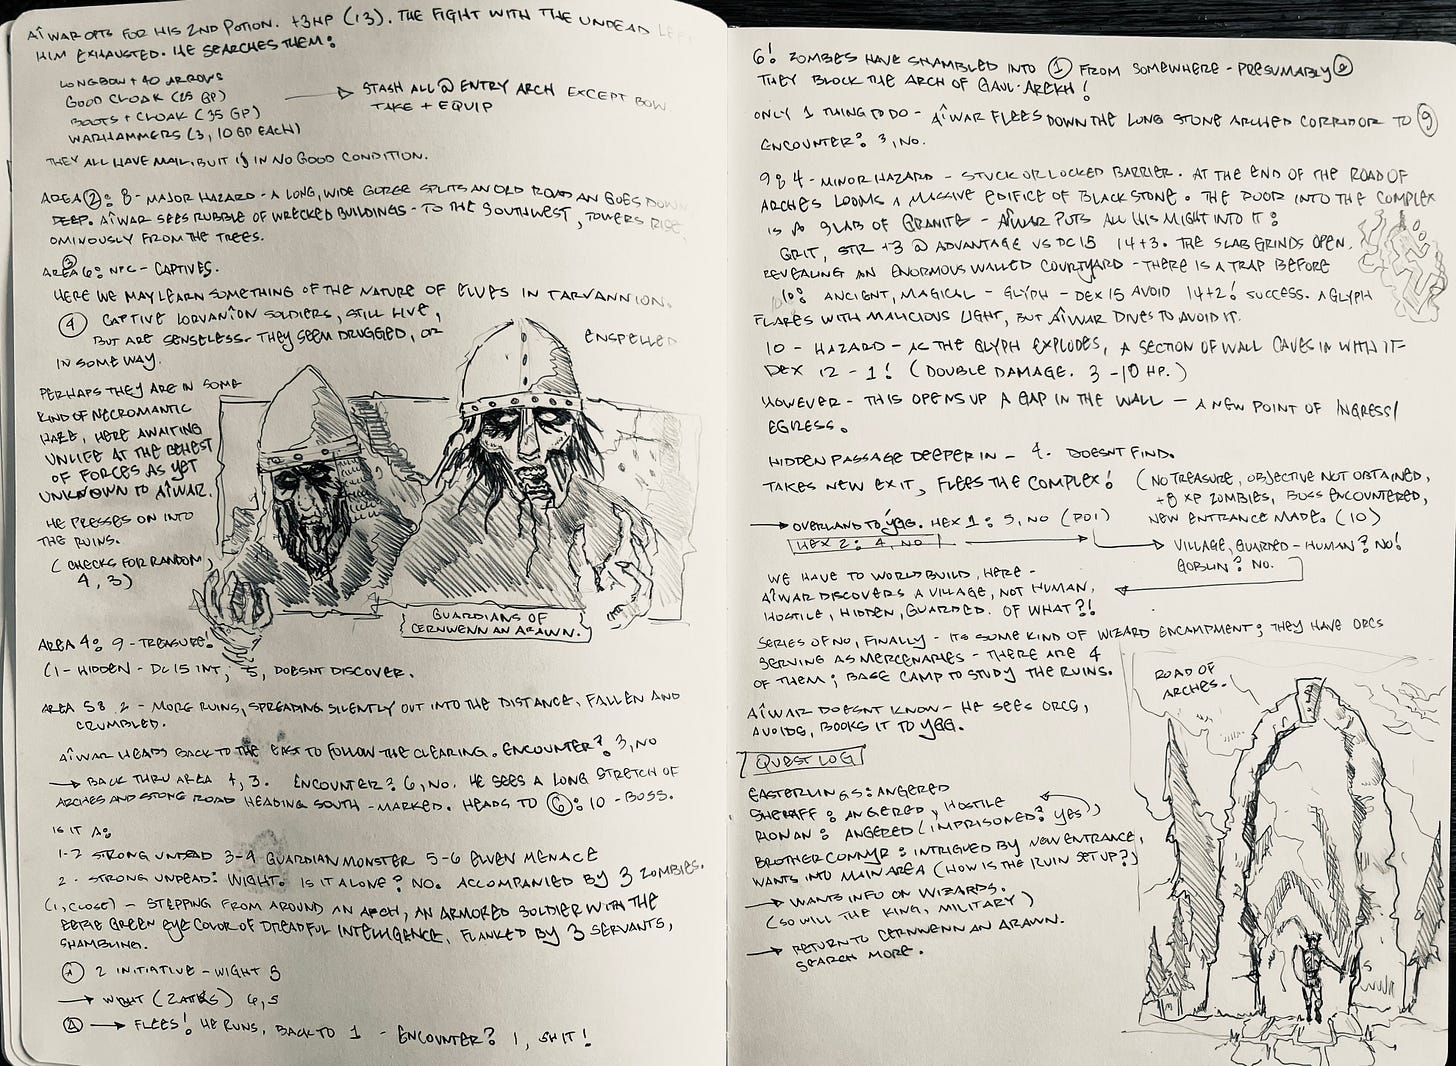 AÎWAR OPTS FOR HIS 2ND POTION. +3HP (13). THE FIGHT WITH THE UNDEAD LEFT
HIM EXHAUSTED. HE SEARCHES THEM:
LONGBOW + 40 ARROWS
GOOD CLOAK (25 GP)
BOOTS + CLOAK (35 GP)
WARHAMMERS (3, 10 GP EACH)
→ STASH ALL @ ENTRY ARCH EXCEPT BOW.
TAKE + EQUIP
THEY ALL HAVE MAIL, BUT IS IN NO GOOD CONDITION.
AREA 2: 8 - MAJOR HAZARD - A LONG, WIDE GORGE SPLITS AN OLD ROAD AN GOES DOWN
DEEP. AÎWAR SEES RUBBLE OF WRECKED BUILDINGS - TO THE SOUTHWEST, TOWERS RISE
OMINOUSLY FROM THE TREES.
AREA 3 6: NPC - CAPTIVES.
HERE WE MAY LEARN SOMETHING OF THE NATURE OF ELVES IN TARVANNION.
4 CAPTIVE LORVANÎON SOLDIERS, STILL LIVE,
BUT ARE SENSELESS. THEY SEEM DRUGGED, OR ENSPELLED
IN SOME WAY.
PERHAPS THEY ARE IN SOME
KIND OF NECROMANTIC
HAZE, HERE AWAITING
UNLIFE AT THE BEHEST
OF FORCES AS YET
UNKNOWN TO AÎWAR.
HE PRESSES ON INTO
THE RUINS.
(CHECKS FOR RANDOM,
4, 3)
GUARDIANS OF
CERNWENN AN ARAWN.
AREA 4: 9 - TREASURE!
(1 - HIDDEN - DC 15 INT, 5, DOESNT DISCOVER.
AREA 5: 2 - MORE RUINS, SPREADING SILENTLY OUT INTO THE DISTANCE, FALLEN AND
CRUMBLED.
AÎWAR HEADS BACK TO THE EAST TO FOLLOW THE CLEARING. ENCOUNTER? 3, NO
→ BACK THRU AREA 4, 3. ENCOUNTER? 6, NO. HE SEES A LONG STRETCH OF
ARCHES AND STONE ROAD HEADING SOUTH - MARKED. HEADS TO 6: 10 - BOSS.
IS IT A:
1-2 STRONG UNDEAD 3-4 GUARDIAN MONSTER 5-6 ELVEN MENACE
2 - STRONG UNDEAD: WIGHT. IS IT ALONE? NO. ACCOMPANIED BY 3 ZOMBIES.
(1, CLOSE) - STEPPING FROM AROUND AN ARCH, AN ARMORED SOLDIER WITH THE
EERIE GREEN EYE COLOR OF DREADFUL INTELLIGENCE, FLANKED BY 3 SERVANTS,
SHAMBLING.
A 2 INITIATIVE - WIGHT 5
→ WIGHT (2 ATKS) 6, 5
A → FLEES! HE RUNS, BACK TO 1 - ENCOUNTER? 1, SHIT!
6! ZOMBIES HAVE SHAMBLED INTO 1 FROM SOMEWHERE - PRESUMABLY 2
THEY BLOCK THE ARCH OF GAUL-AREKH!
ONLY 1 THING TO DO - AÎWAR FLEES DOWN THE LONG STONE ARCHED CORRIDOR TO 9
ENCOUNTER? 3, NO.
9: 4 - MINOR HAZARD - STUCK OR LOCKED BARRIER. AT THE END OF THE ROAD OF
ARCHES LOOMS A MASSIVE EDIFICE OF BLACK STONE. THE DOOR INTO THE COMPLEX
IS A SLAB OF GRANITE - AÎWAR PUTS ALL HIS MIGHT INTO IT:
GRIT, STR +3 @ ADVANTAGE VS DC 15 14+3. THE SLAB GRINDS OPEN.
REVEALING AN ENORMOUS WALLED COURTYARD - THERE IS A TRAP BEFORE
10: ANCIENT, MAGICAL - GLYPH - DEX 15 AVOID 14+2! SUCCESS. A GLYPH
FLARES WITH MALICIOUS LIGHT, BUT AÎWAR DIVES TO AVOID IT.
10 - HAZARD - AS THE GLYPH EXPLODES, A SECTION OF WALL CAVES IN WITH IT
DEX 12 - 1! (DOUBLE DAMAGE. 3 - 10 HP.)
HOWEVER - THIS OPENS UP A GAP IN THE WALL - A NEW POINT OF INGRESS/
EGRESS.
HIDDEN PASSAGE DEEPER IN - 4. DOESNT FIND.
TAKES NEW EXIT, FLEES THE COMPLEX! (NO TREASURE, OBJECTIVE NOT OBTAINED,
+8 XP ZOMBIES, BOSS ENCOUNTERED,
NEW ENTRANCE MADE. (10)
→ OVERLAND TO YGG. HEX 1: 5, NO (POI)
HEX 2: 4, NO
→ VILLAGE, GUARDED - HUMAN? NO!
GOBLIN? NO.
WE HAVE TO WORLDBUILD, HERE -
AÎWAR DISCOVERS A VILLAGE, NOT HUMAN,
HOSTILE, HIDDEN, GUARDED. OF WHAT?!
SERIES OF NO, FINALLY - ITS SOME KIND OF WIZARD ENCAMPMENT; THEY HAVE ORCS
SERVING AS MERCENARIES - THERE ARE 4
OF THEM; BASE CAMP TO STUDY THE RUINS.
AÎWAR DOESNT KNOW - HE SEES ORCS,
AVOIDS, BOOKS IT TO YGG.
QUEST LOG
EASTERLINGS: ANGERED
SHERIFF: ANGERED, HOSTILE
RIONAN: ANGERED (IMPRISONED? YES)
BROTHER CONNYR: INTRIGUED BY NEW ENTRANCE,
WANTS INTO MAIN AREA (HOW IS THE RUIN SET UP?)
→ WANTS INFO ON WIZARDS.
(SO WILL THE KING, MILITARY)
→ RETURN TO CERNWENN AN ARAWN.
SEARCH MORE.
ROAD OF
ARCHES.